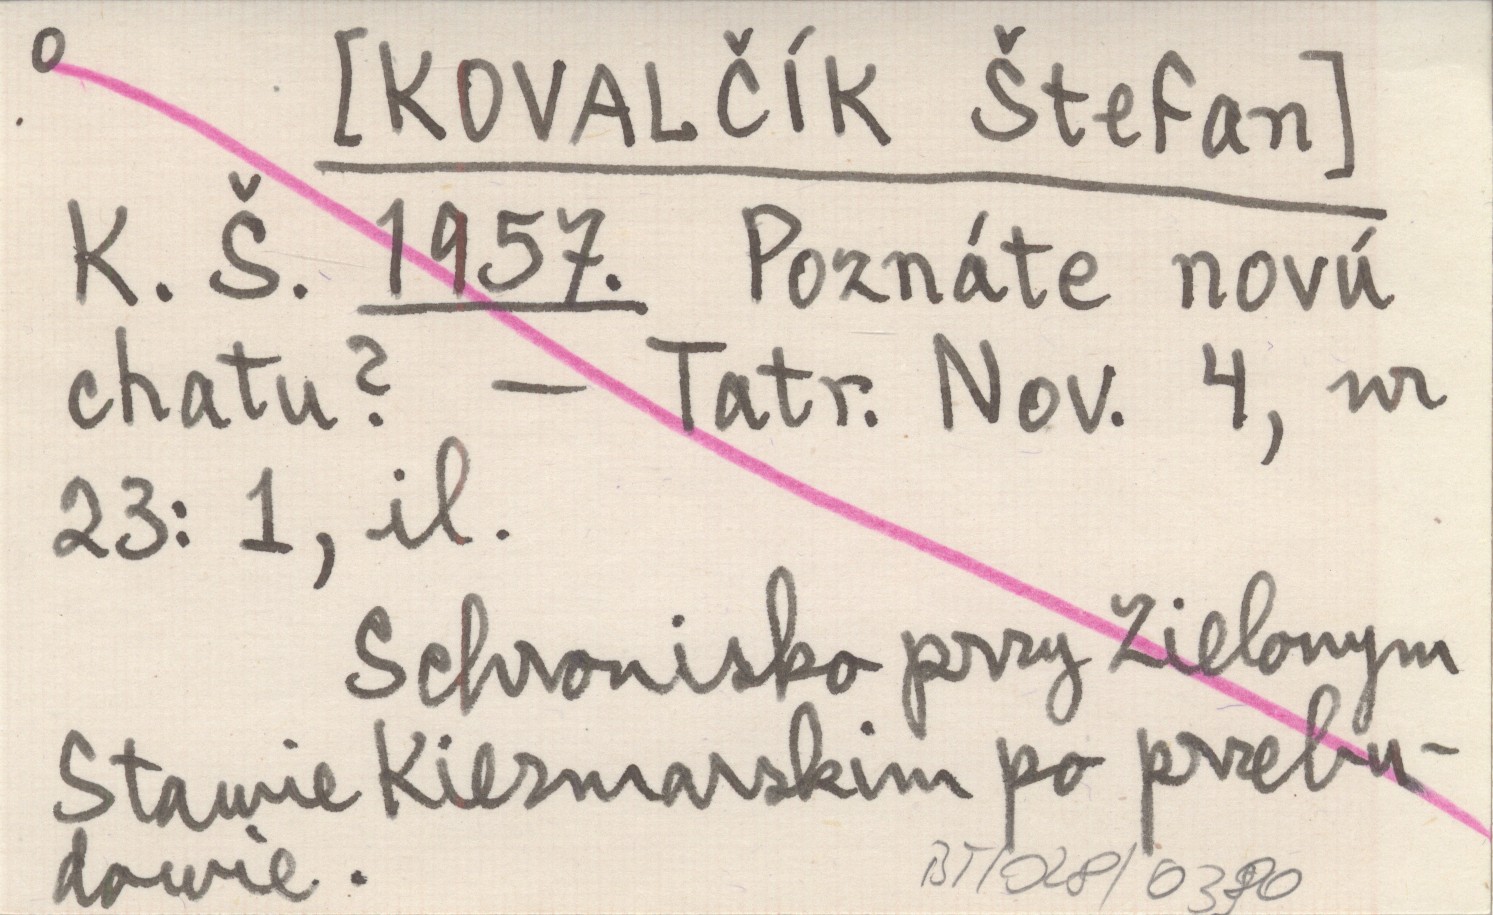 o
[KOVALČÍK Štefan]
K. Š. 1957. Poznáte novú
chatu? — Tatr. Nov. 4, nr
23: 1, il.
Schronisko przy Zielonym
Stawie Kiezmarskim po przebu-
dowie.
BT/028/